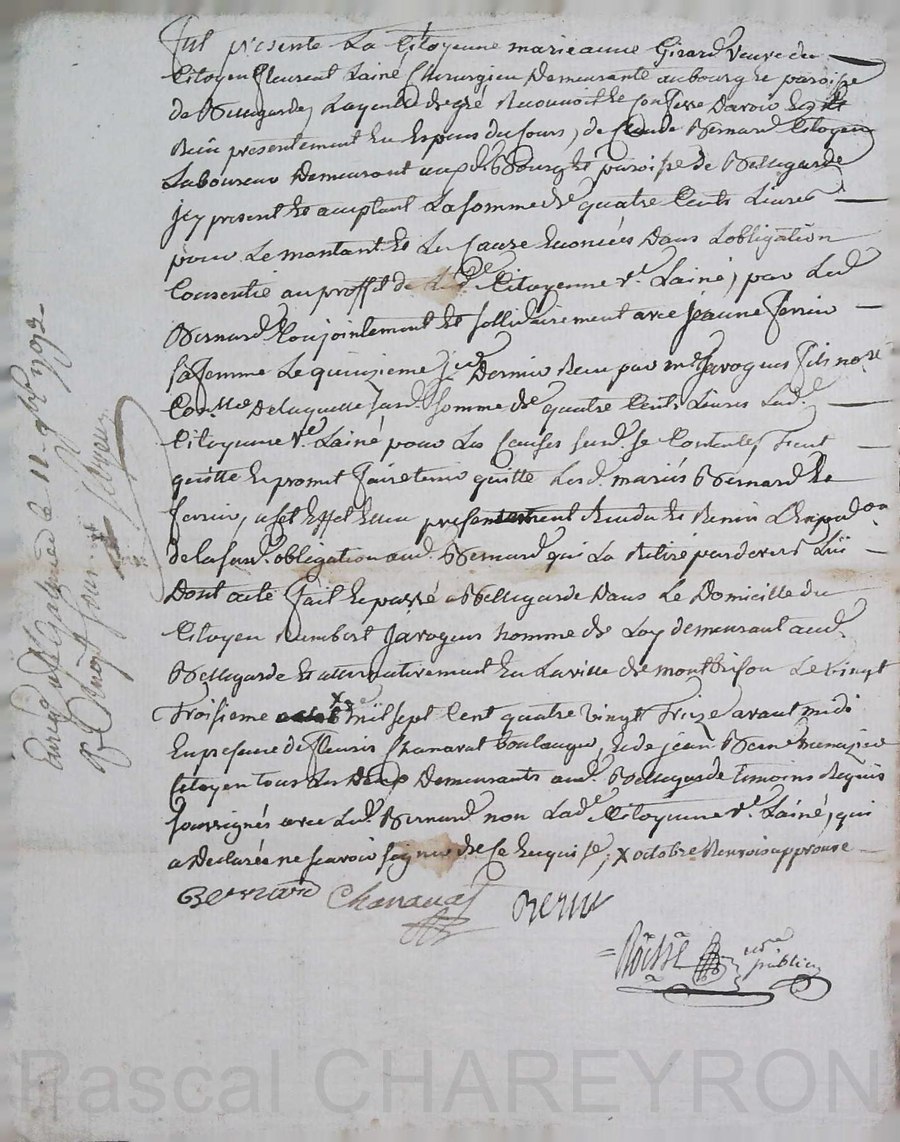 Fut presente La Citoyenne marieanne Girard Veuve du
Citoyen fleurent Lainé Chirurgien Demeurante au bourg et paroisse
de Bellegarde, Laquelle de gré Reconnoit et confesse Davoir
Reçu presentement En Espece du Cours, de Claude Bernard Citoyen
Laboureur Demeurant aud. Bourg et paroisse de Bellegarde
jcy present et acceptant La somme de quatre Cents Livres
pour Le montant et Les Causes Enoncées Dans Lobligation
Consentie au proffit de Citoyenne Ve. Lainé, par Led.
Bernard Conjointement et sollidairement avec jeanne ferrin
sa femme Le quinzieme Dernier Recu par me javogues fils no.re
De Laquelle sard. somme de quatre Cents Livres Lad.
Citoyenne Ve. Lainé pour Les Causes susd. se Contente, Tient
quitte Et promet faire tenir quitte Lesd. mariés Bernard et
ferrin, a set Effet Elle a presentement Rendu et Remis Lexpedon.
de la susd. obligation aud. Bernard qui La Retiré pardevers Lui
Dont acte fait et passé a Bellegarde Dans Le Domicille du
Citoyen Rambert javogues homme de Loy demeurant aud.
Bellegarde et alternativement En La ville de montbrison Le vingt
Troisieme x mil sept Cent quatre vingt Treize avant midi
En presence de fleuris Chanavat boulanger, et de jean
Citoyen tous Les Deux Demeurants aud. Bellegarde temoins Requis
soussignés avec Led. Bernard non Lad. Citoyenne Ve. Lainé, qui
a Declarée ne scavoir signer de ce Enquise, x octobre Renvois approuvé
Bernard Chanavat
no.re public
Pascal CHAREYRON